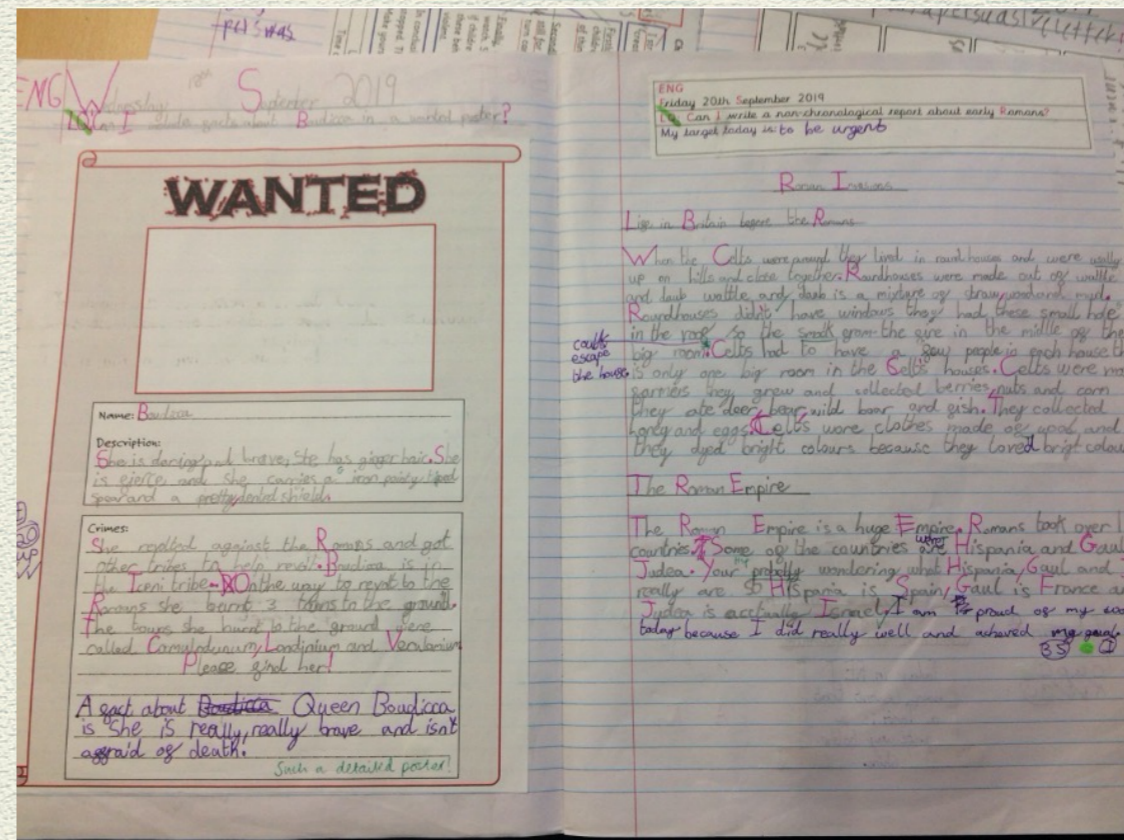 ENG Wednesday 18th September 2019
LO: Can I state facts about Boudicca in a wanted poster?
WANTED
Name: Boudicca
Description:
She is daring and brave, She has ginger hair. She
is fierce and she carries a iron pointy tiped
spear and a pretty dented shield.
Crimes:
She revolted against the Romans and got
other tribes to help revolt. Boudicca is in
the Iceni tribe. On the way to revolt to the
Romans she burnt 3 towns to the ground.
The towns she burnt to the ground were
called Camulodunum, Londinium and Verulamium
Please find her!
A fact about Queen Boudicca
is she is really, really brave and isn't
affraid of death.
Such a detailed poster!
ENG
Friday 20th September 2019
LO: Can I write a non-chronological report about early Romans?
My target today is: to be urgent
Roman Invasions
Life in Britain before the Romans
When the Celts were around they lived in roundhouses and were
up on hills and close together. Roundhouses were made out of wattle
and daub wattle and daub is a mixture of straw, wood and mud.
Roundhouses didn't have windows they had these small hole
in the roof so the smoke from the fire in the middle of the
could escape the house
big room. Celts had to have a few people in each house
is only one big room in the Celts houses. Celts were
farmers they grew and collected berries, nuts and corn
they ate deer, bear, wild boar and fish. They collected
honey and eggs. Celts wore clothes made of wool and
they dyed bright colours because they loved brigt
The Roman Empire
The Roman Empire is a huge Empire. Romans took over
countries. Some of the countries were Hispania and Gaul
Judea. Your probably wondering what Hispania, Gaul and
really are so Hispania is Spain, Gaul is France
Judea is acctually Israel. I am proud of my
today because I did really well and achieved my goal.
35 1